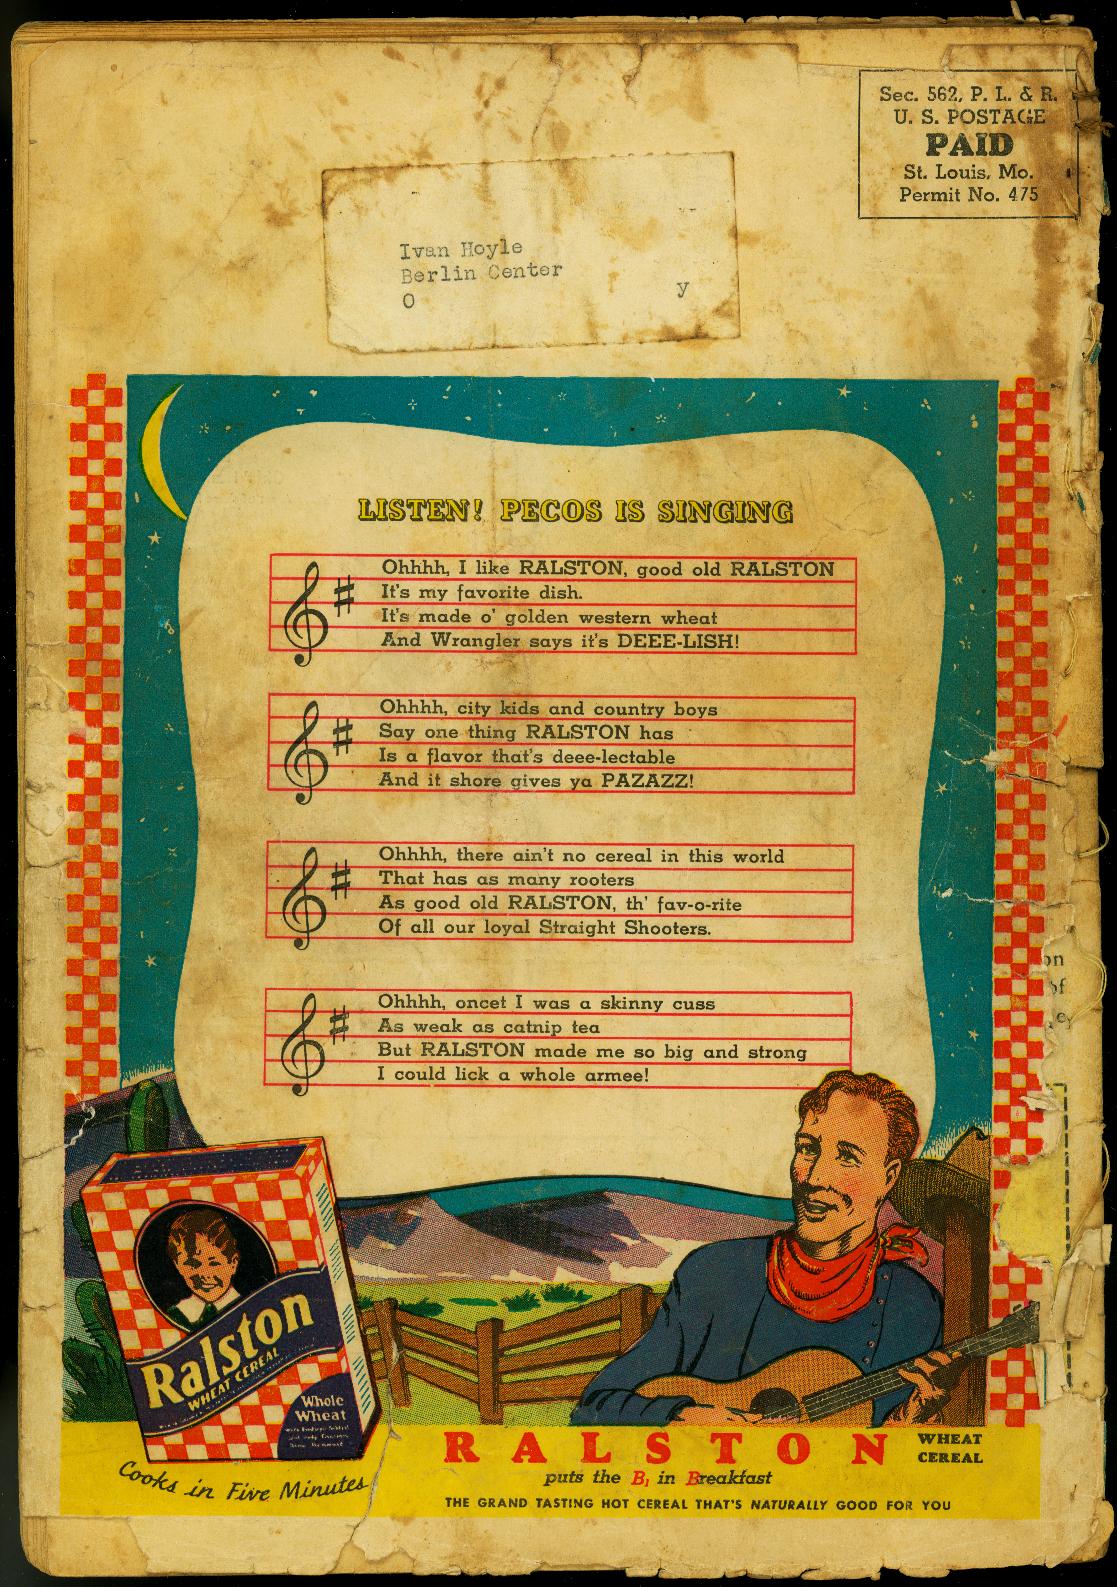 Sec. 562, P. L. & R.
U. S. POSTAGE
PAID
St. Louis, Mo.
Permit No. 475
Ivan Hoyle
Berlin Center
O y
LISTEN! PECOS IS SINGING
Ohhhh, I like RALSTON, good old RALSTON
It's my favorite dish.
It's made o' golden western wheat
And Wrangler says it's DEEE-LISH!
Ohhhh, city kids and country boys
Say one thing RALSTON has
Is a flavor that's deee-lectable
And it shore gives ya PAZAZZ!
Ohhhh, there ain't no cereal in this world
That has as many rooters
As good old RALSTON, th' fav-o-rite
Of all our loyal Straight Shooters.
on
of
Ohhhh, oncet I was a skinny cuss
As weak as catnip tea
But RALSTON made me so big and strong
I could lick a whole armee!
Ralston
WHEAT CEREAL
Whole
Wheat
Cooks in Five Minutes
RALSTON WHEAT
CEREAL
puts the B1 in Breakfast
THE GRAND TASTING HOT CEREAL THAT'S NATURALLY GOOD FOR YOU